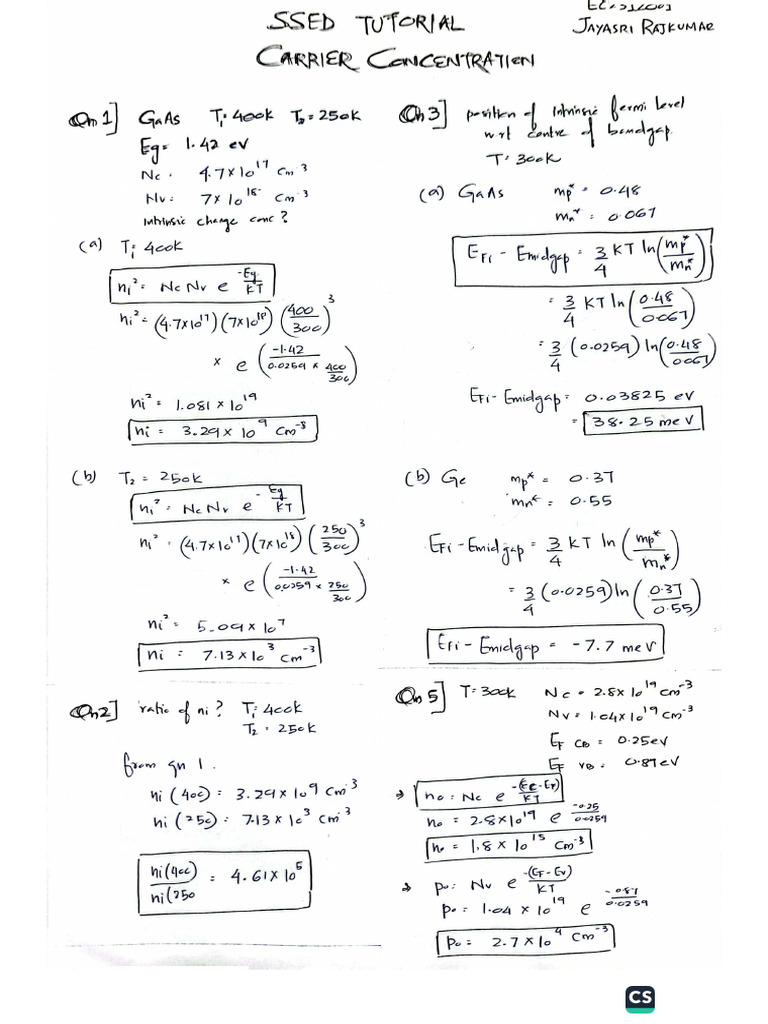 SSED TUTORIAL
JAYASRI RAJKUMAR
CARRIER CONCENTRATION
Qn 1] GaAs T₁= 400K T₂= 250K
Eg= 1.42 eV
Nc = 4.7x10¹⁷ cm⁻³
Nv = 7x10¹⁸ cm⁻³
Intrinsic change conc ?
(a) T₁= 400K
ni² = Nc Nv e^(-Eg/KT)
ni² = (4.7x10¹⁷)(7x10¹⁸)(400/300)³
x e^(-1.42/(0.0259 x 400/300))
ni² = 1.081 x 10¹⁹
ni = 3.29 x 10⁹ cm⁻³
(b) T₂ = 250K
ni² = Nc Nv e^(-Eg/KT)
ni² = (4.7x10¹⁷)(7x10¹⁸)(250/300)³
x e^(-1.42/(0.0259 x 250/300))
ni² = 5.09 x 10⁷
ni = 7.13 x 10³ cm⁻³
Qn2] ratio of ni? T₁= 400K
T₂= 250K
from qn 1.
ni (400) = 3.29 x 10⁹ cm⁻³
ni (250) = 7.13 x 10³ cm⁻³
ni(400)/ni(250 = 4.61 x 10⁵
Qn 3] position of Intrinsic fermi level
wrt centre of bandgap.
T= 300K
(a) GaAs mp* = 0.48
mn* = 0.067
EFi - Emidgap = 3/4 KT ln(mp*/mn*)
= 3/4 KT ln(0.48/0.067)
= 3/4 (0.0259) ln(0.48/0.067)
EFi - Emidgap = 0.03825 eV
= 38.25 meV
(b) Ge mp* = 0.37
mn* = 0.55
EFi - Emidgap = 3/4 KT ln(mp*/mn*)
= 3/4 (0.0259) ln(0.37/0.55)
EFi - Emidgap = -7.7 meV
Qn 5] T= 300K Nc = 2.8x10¹⁹ cm⁻³
Nv = 1.04x10¹⁹ cm⁻³
EF CB = 0.25eV
EF VB = 0.87eV
⇒ no = Nc e^(-(Ec-EF)/KT)
no = 2.8x10¹⁹ e^(-0.25/0.0259)
no = 1.8 x 10¹⁵ cm⁻³
⇒ po = Nv e^(-(EF-Ev)/KT)
po = 1.04 x 10¹⁹ e^(-0.87/0.0259)
po = 2.7 x 10⁴ cm⁻³
CS